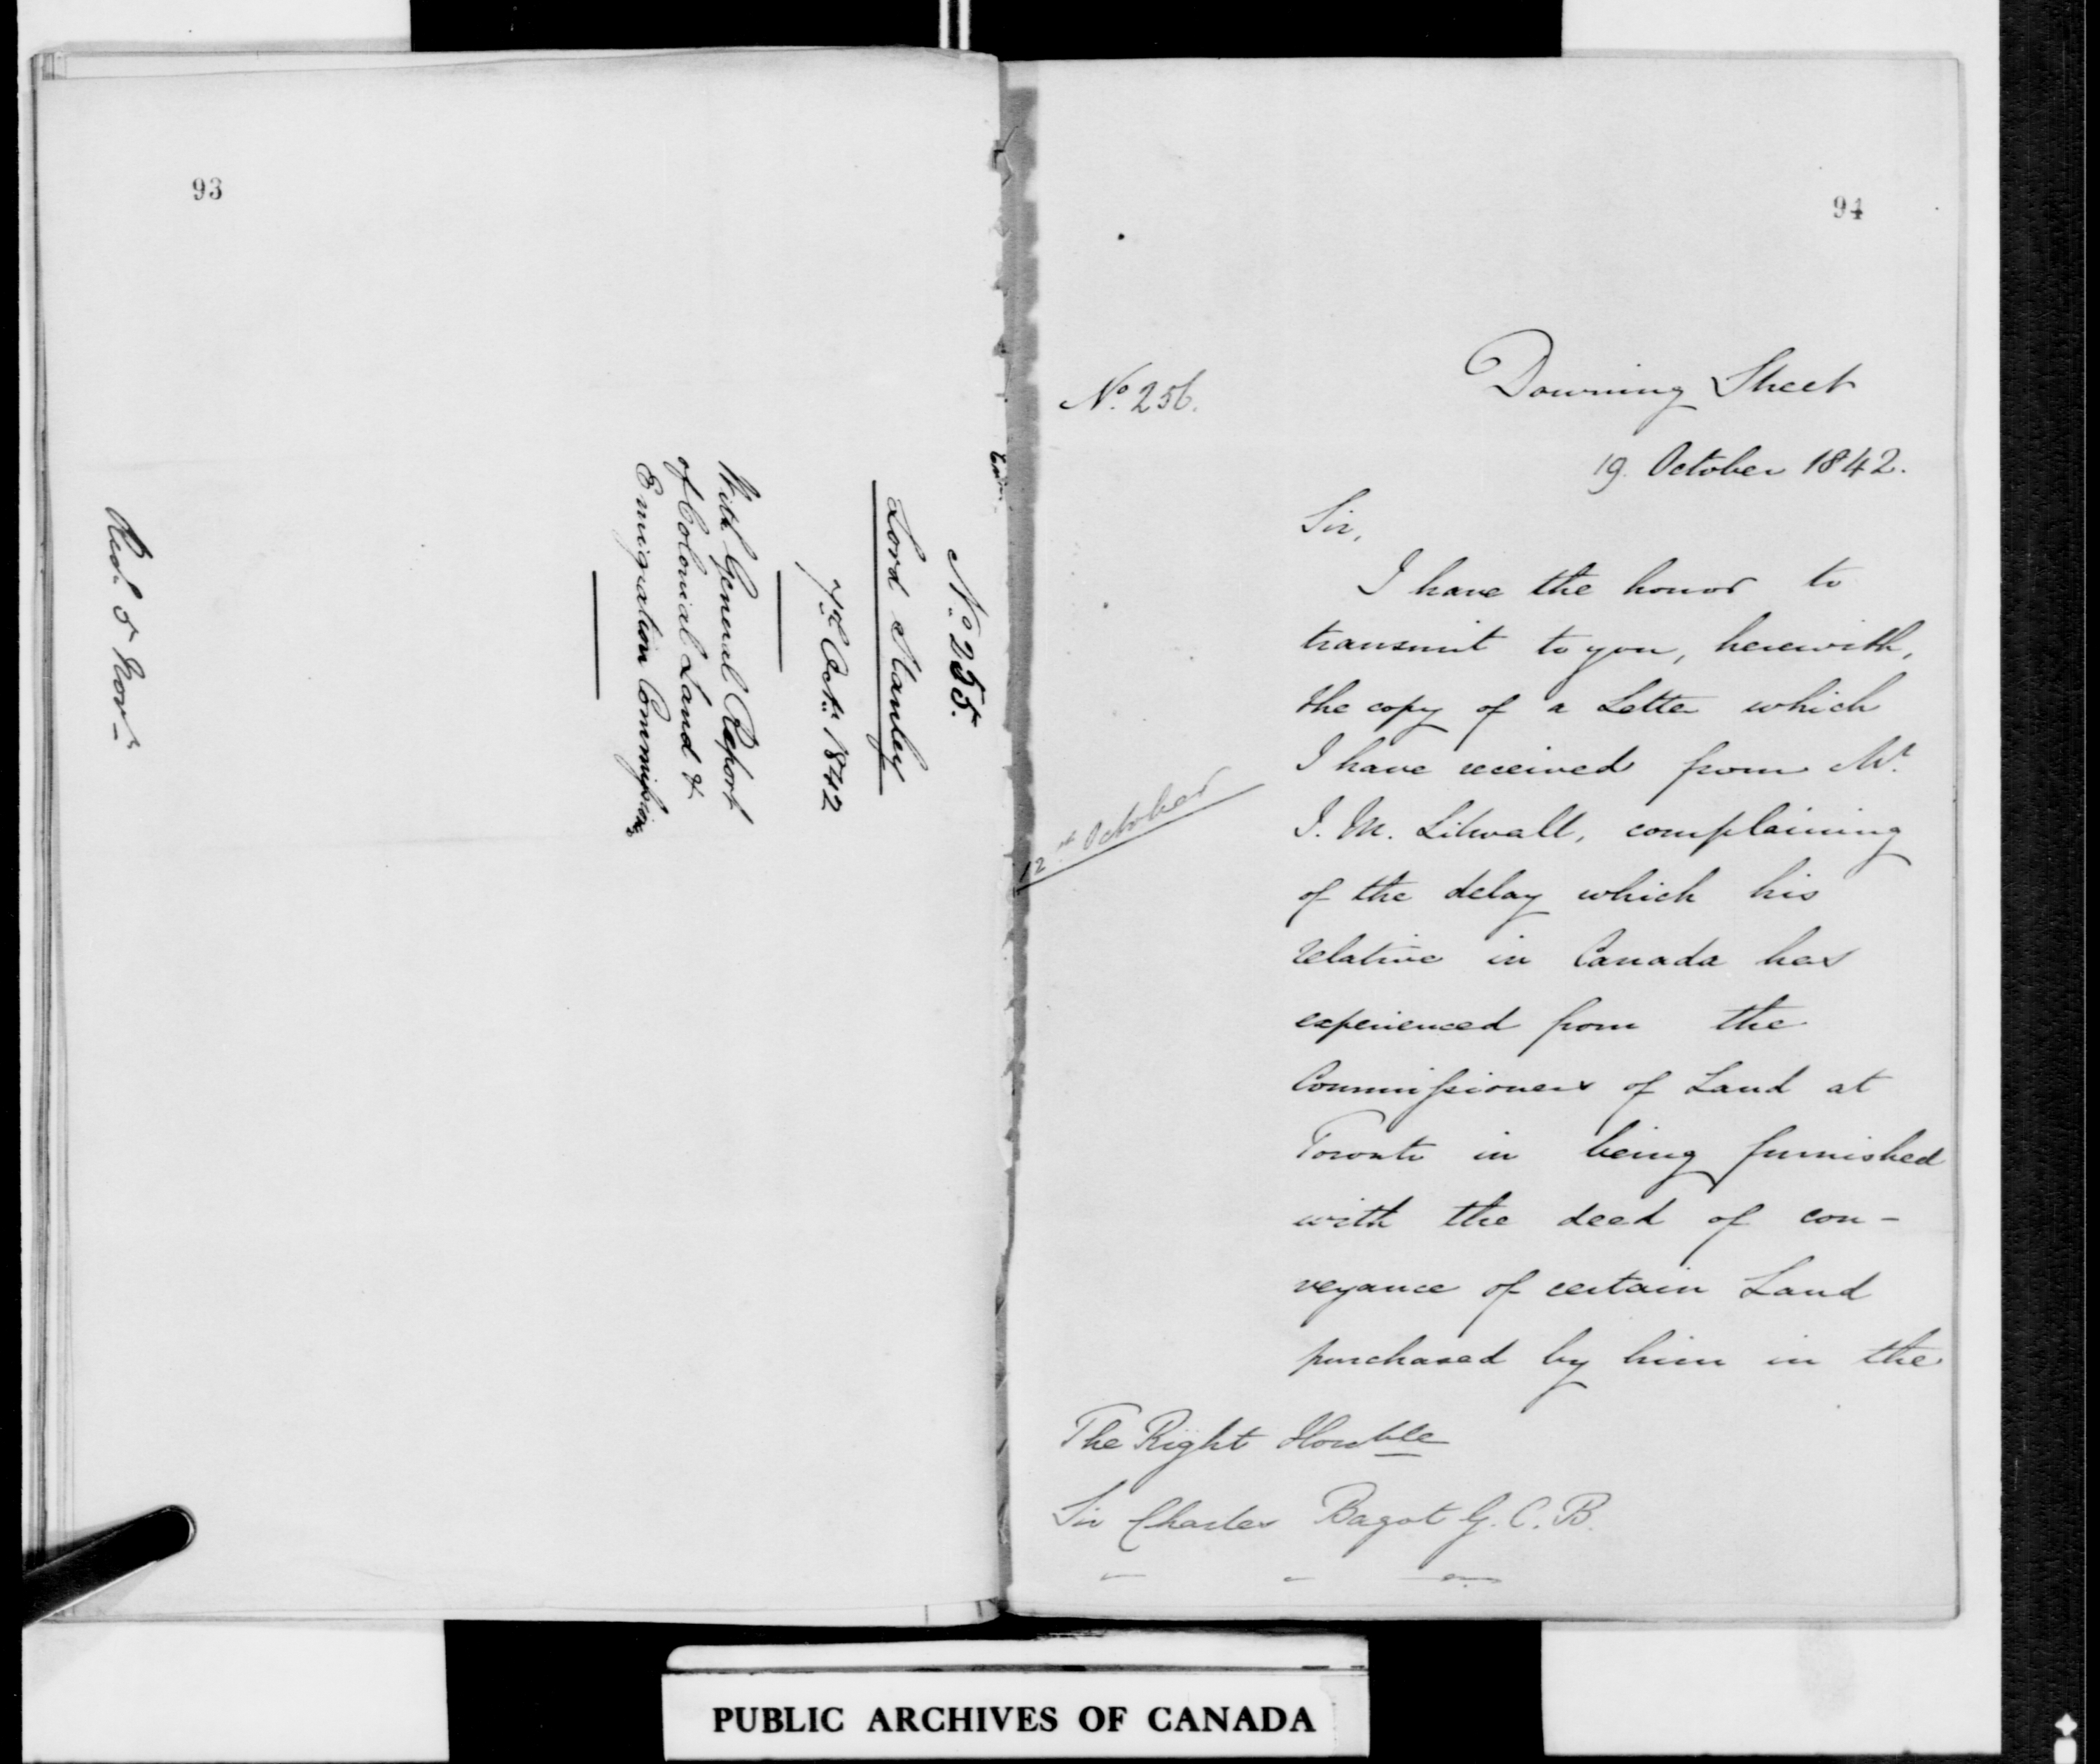 93
No 255.
Lord Stanley
7th Octr. 1842
With General Report
of Colonial Land &
Emigration Commissioners
Recd. 5 Novr.
94
No. 256.
Downing Street
19. October 1842.
Sir,
I have the honor to
transmit to you, herewith,
the copy of a Letter which
I have received from Mr.
12th October
I. M. complaining
of the delay which his
relative in Canada has
experienced from the
Commissioners of Land at
Toronto in being furnished
with the deed of con-
veyance of certain Land
purchased by him in the
The Right Honble
Sir Charles Bagot G. C. B.
PUBLIC ARCHIVES OF CANADA